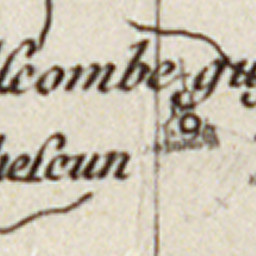 lcombe gu
helcun